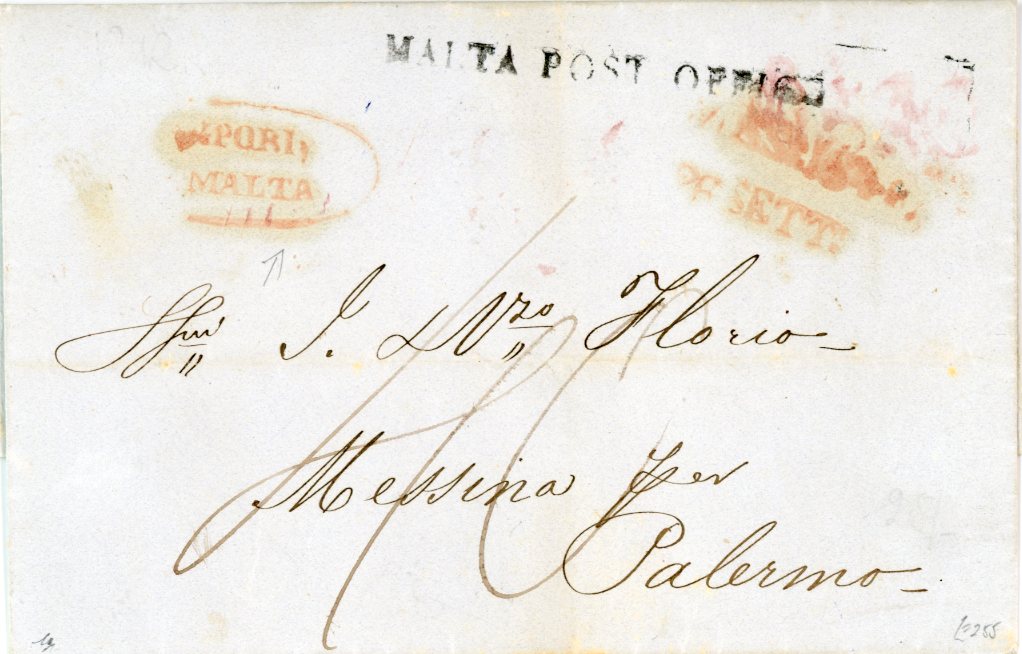 MALTA POST OFFICE
MALTA
SETT
I. & V.zo Florio
Messina per
Palermo
255